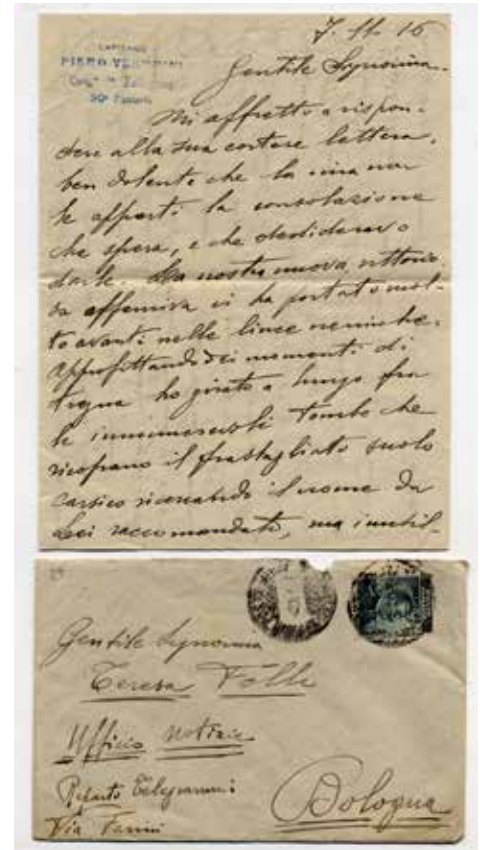 7. 11. 16
CAPITANO
PIERO
Gentile Signorina
Mi affretto a rispon-
dere alla sua cortese lettera,
ben dolente che la mia non
le apporti la consolazione
che spera, e che desideravo
darle. La nostra nuova vittorio
sa offensiva ci ha portato mol-
to avanti nelle linee nemiche.
Approfittando dei momenti di
tregua ho girato a lungo fra
le innumerevoli tombe che
ricoprano il frastagliato suolo
carsico ricercando il nome da
Lei raccomandato, ma inutil-
Gentile Signorina
Teresa Folli
Ufficio Notizie
Reparto Telegrammi
Via Farini
Bologna